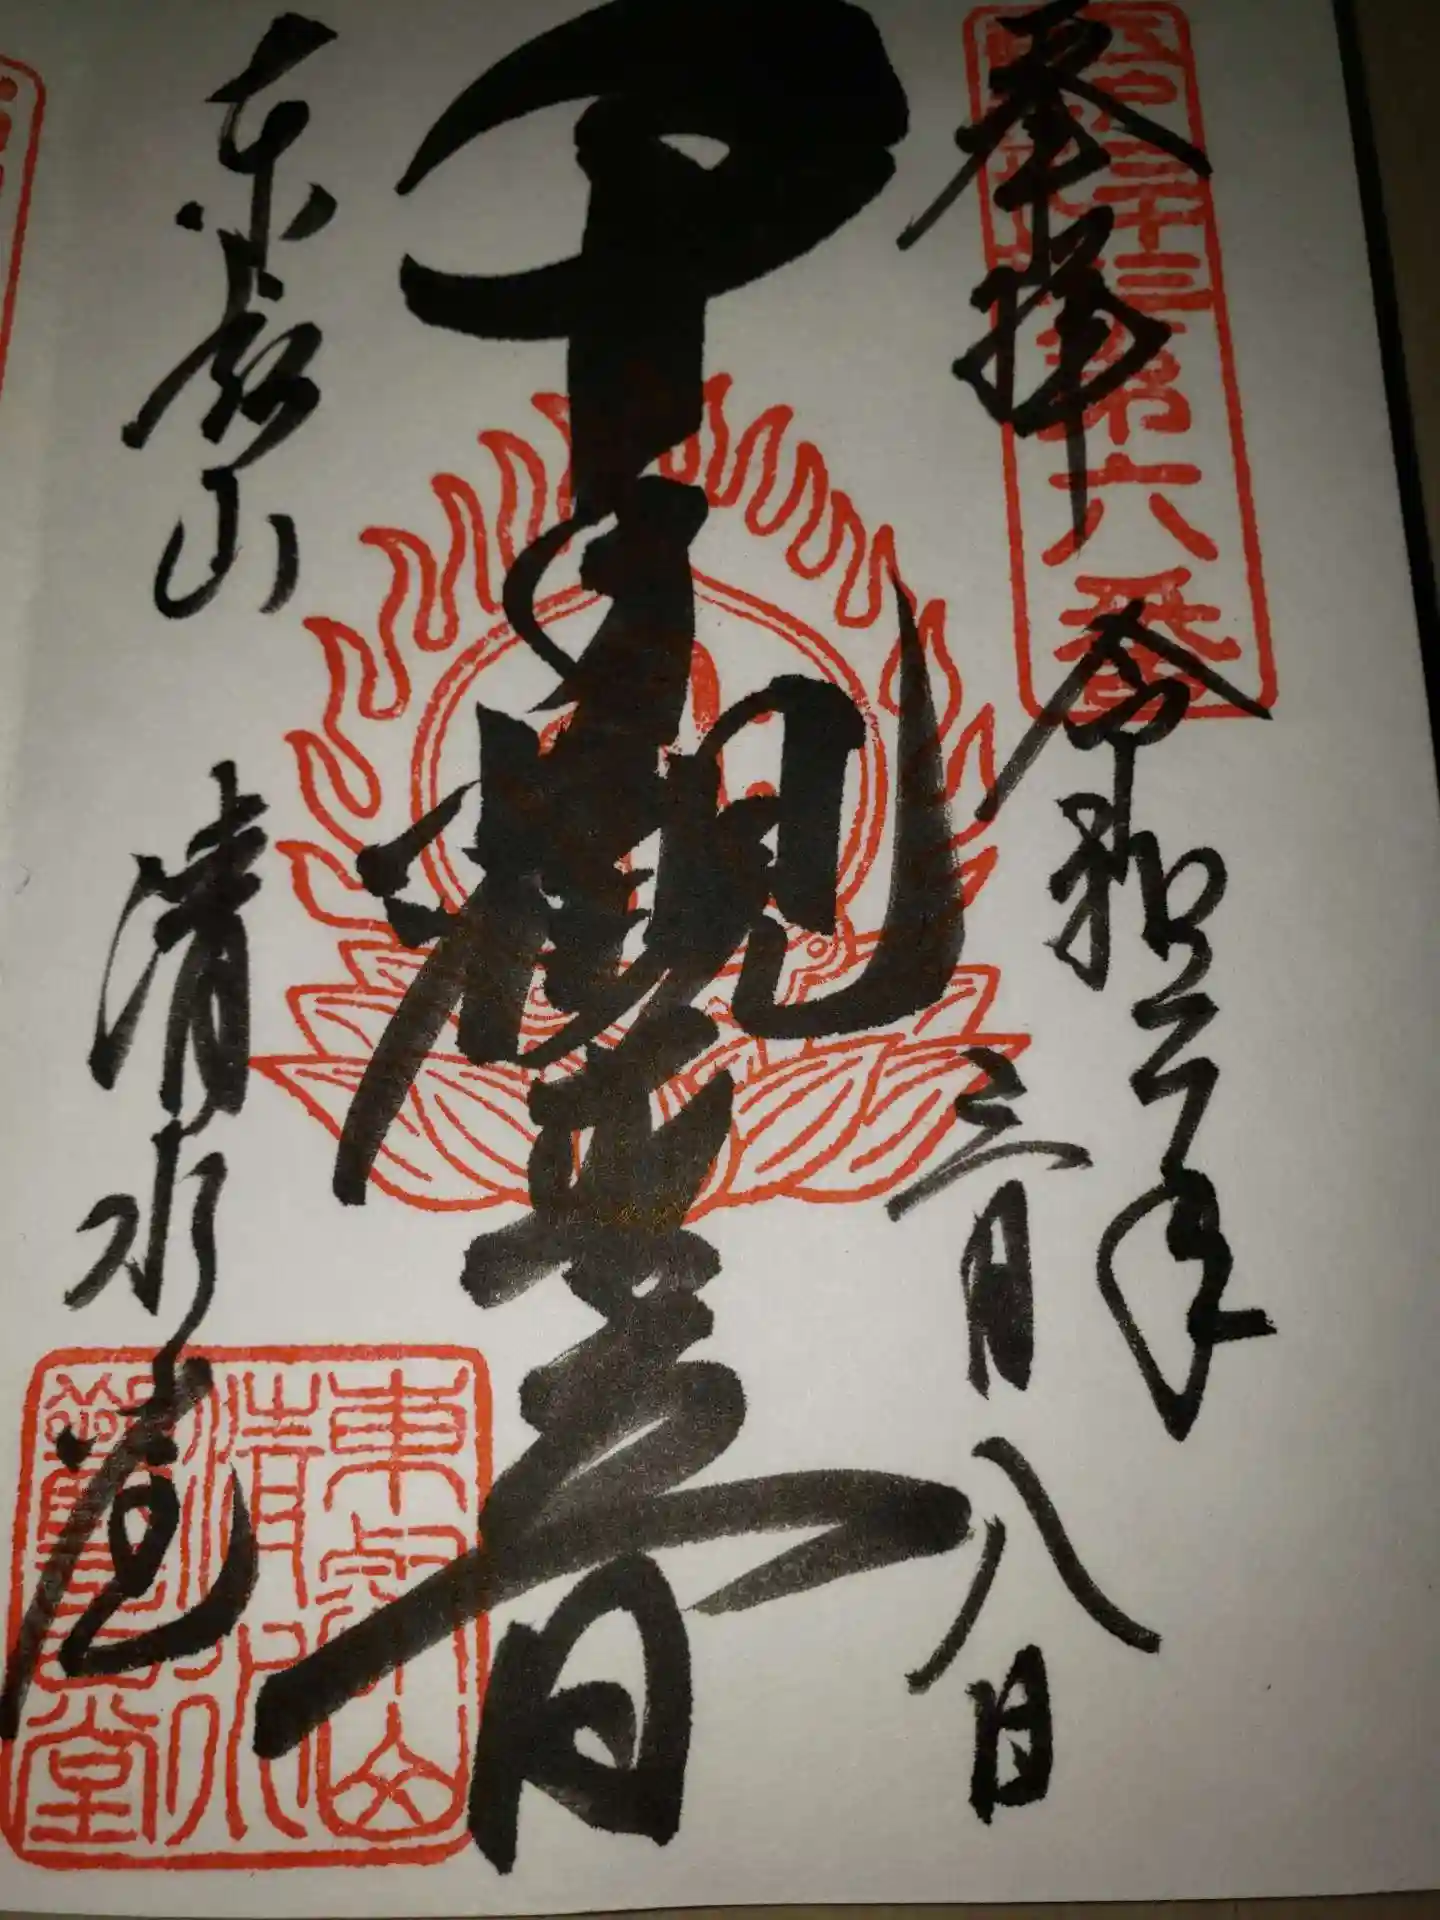 奉拝
江戸三十三
第六番
令和二年
三月八日
千手観世音
東叡山
清水堂
東叡山
清水
觀音堂